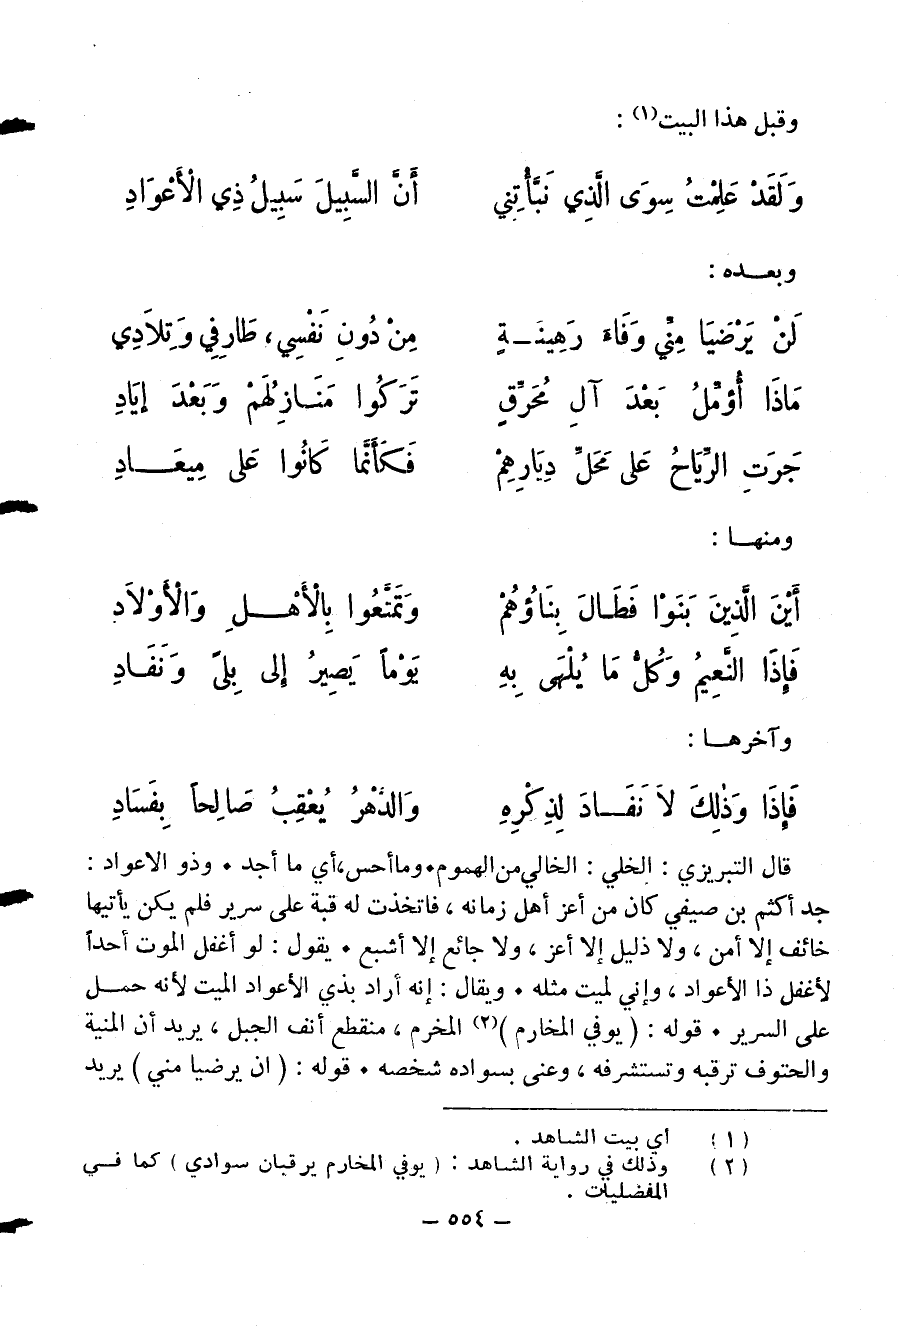 وقبل هذا البيت(١) :
وَلَقَدْ عَلِمْتُ سِوَى الَّذِي نَبَّأْتِنِي أَنَّ السَّبِيلَ سَبِيلُ ذِي الْأَعْوَادِ
وبعـــده :
لَنْ يَرْضَيَا مِنِّي وَفَاءَ رَهِينَـةٍ مِنْ دُونِ نَفْسِي، طَارِفِي وَتِلَادِي
مَاذَا أُؤَمِّلُ بَعْدَ آلِ مُحَرِّقٍ تَرَكُوا مَنَـازِلَهُمْ وَبَعْدَ إِيَادِ
جَرَتِ الرِّيَاحُ عَلَى مَحَلِّ دِيَارِهِمْ فَكَأَنَّمَا كَانُوا عَلَى مِيعَـــادِ
ومنهـــا :
أَيْنَ الَّذِينَ بَنَوْا فَطَالَ بِنَاؤُهُمْ وَتَمَتَّعُوا بِالْأَهْـــلِ وَالْأَوْلَادِ
فَإِذَا النَّعِيمُ وَكُلُّ مَا يُلْهَى بِهِ يَوْماً يَصِيرُ إِلى بِلىً وَنَفَادِ
وآخرهـــا :
فَإِذَا وَذَلِكَ لَا نَفَـــادَ لِذِكْرِهِ وَالدَّهْرُ يُعْقِبُ صَالِحاً بِفَسَادِ
قال التبريزي : الخلي : الخالي من الهموم٠وما أحس،أي ما أجد ٠ وذو الاعواد :
جد أكثم بن صيفي كان من أعز أهل زمانه ، فاتخذت له قبة على سرير فلم يكن يأتيها
خائف إلا أمن ، ولا ذليل إلا أعز ، ولا جائع إلا أشبع ٠ يقول : لو أغفل الموت أحداً
لأغفل ذا الأعواد ، وإني لميت مثله ٠ ويقال : إنه أراد بذي الأعواد الميت لأنه حمـــل
على السرير ٠ قوله : ( يوفي المخارم )(٢) المخرم ، منقطع أنف الجبل ، يريد أن المنية
والحتوف ترقبه وتستشرفه ، وعنى بسواده شخصه ٠ قوله : ( ان يرضيا مني ) يريد
(١) أي بيت الشاهد .
(٢) وذلك في رواية الشاهد : ( يوفي المخارم يرقبان سوادي ) كما فـــي
المفضليات .
– ٥٥٤ –